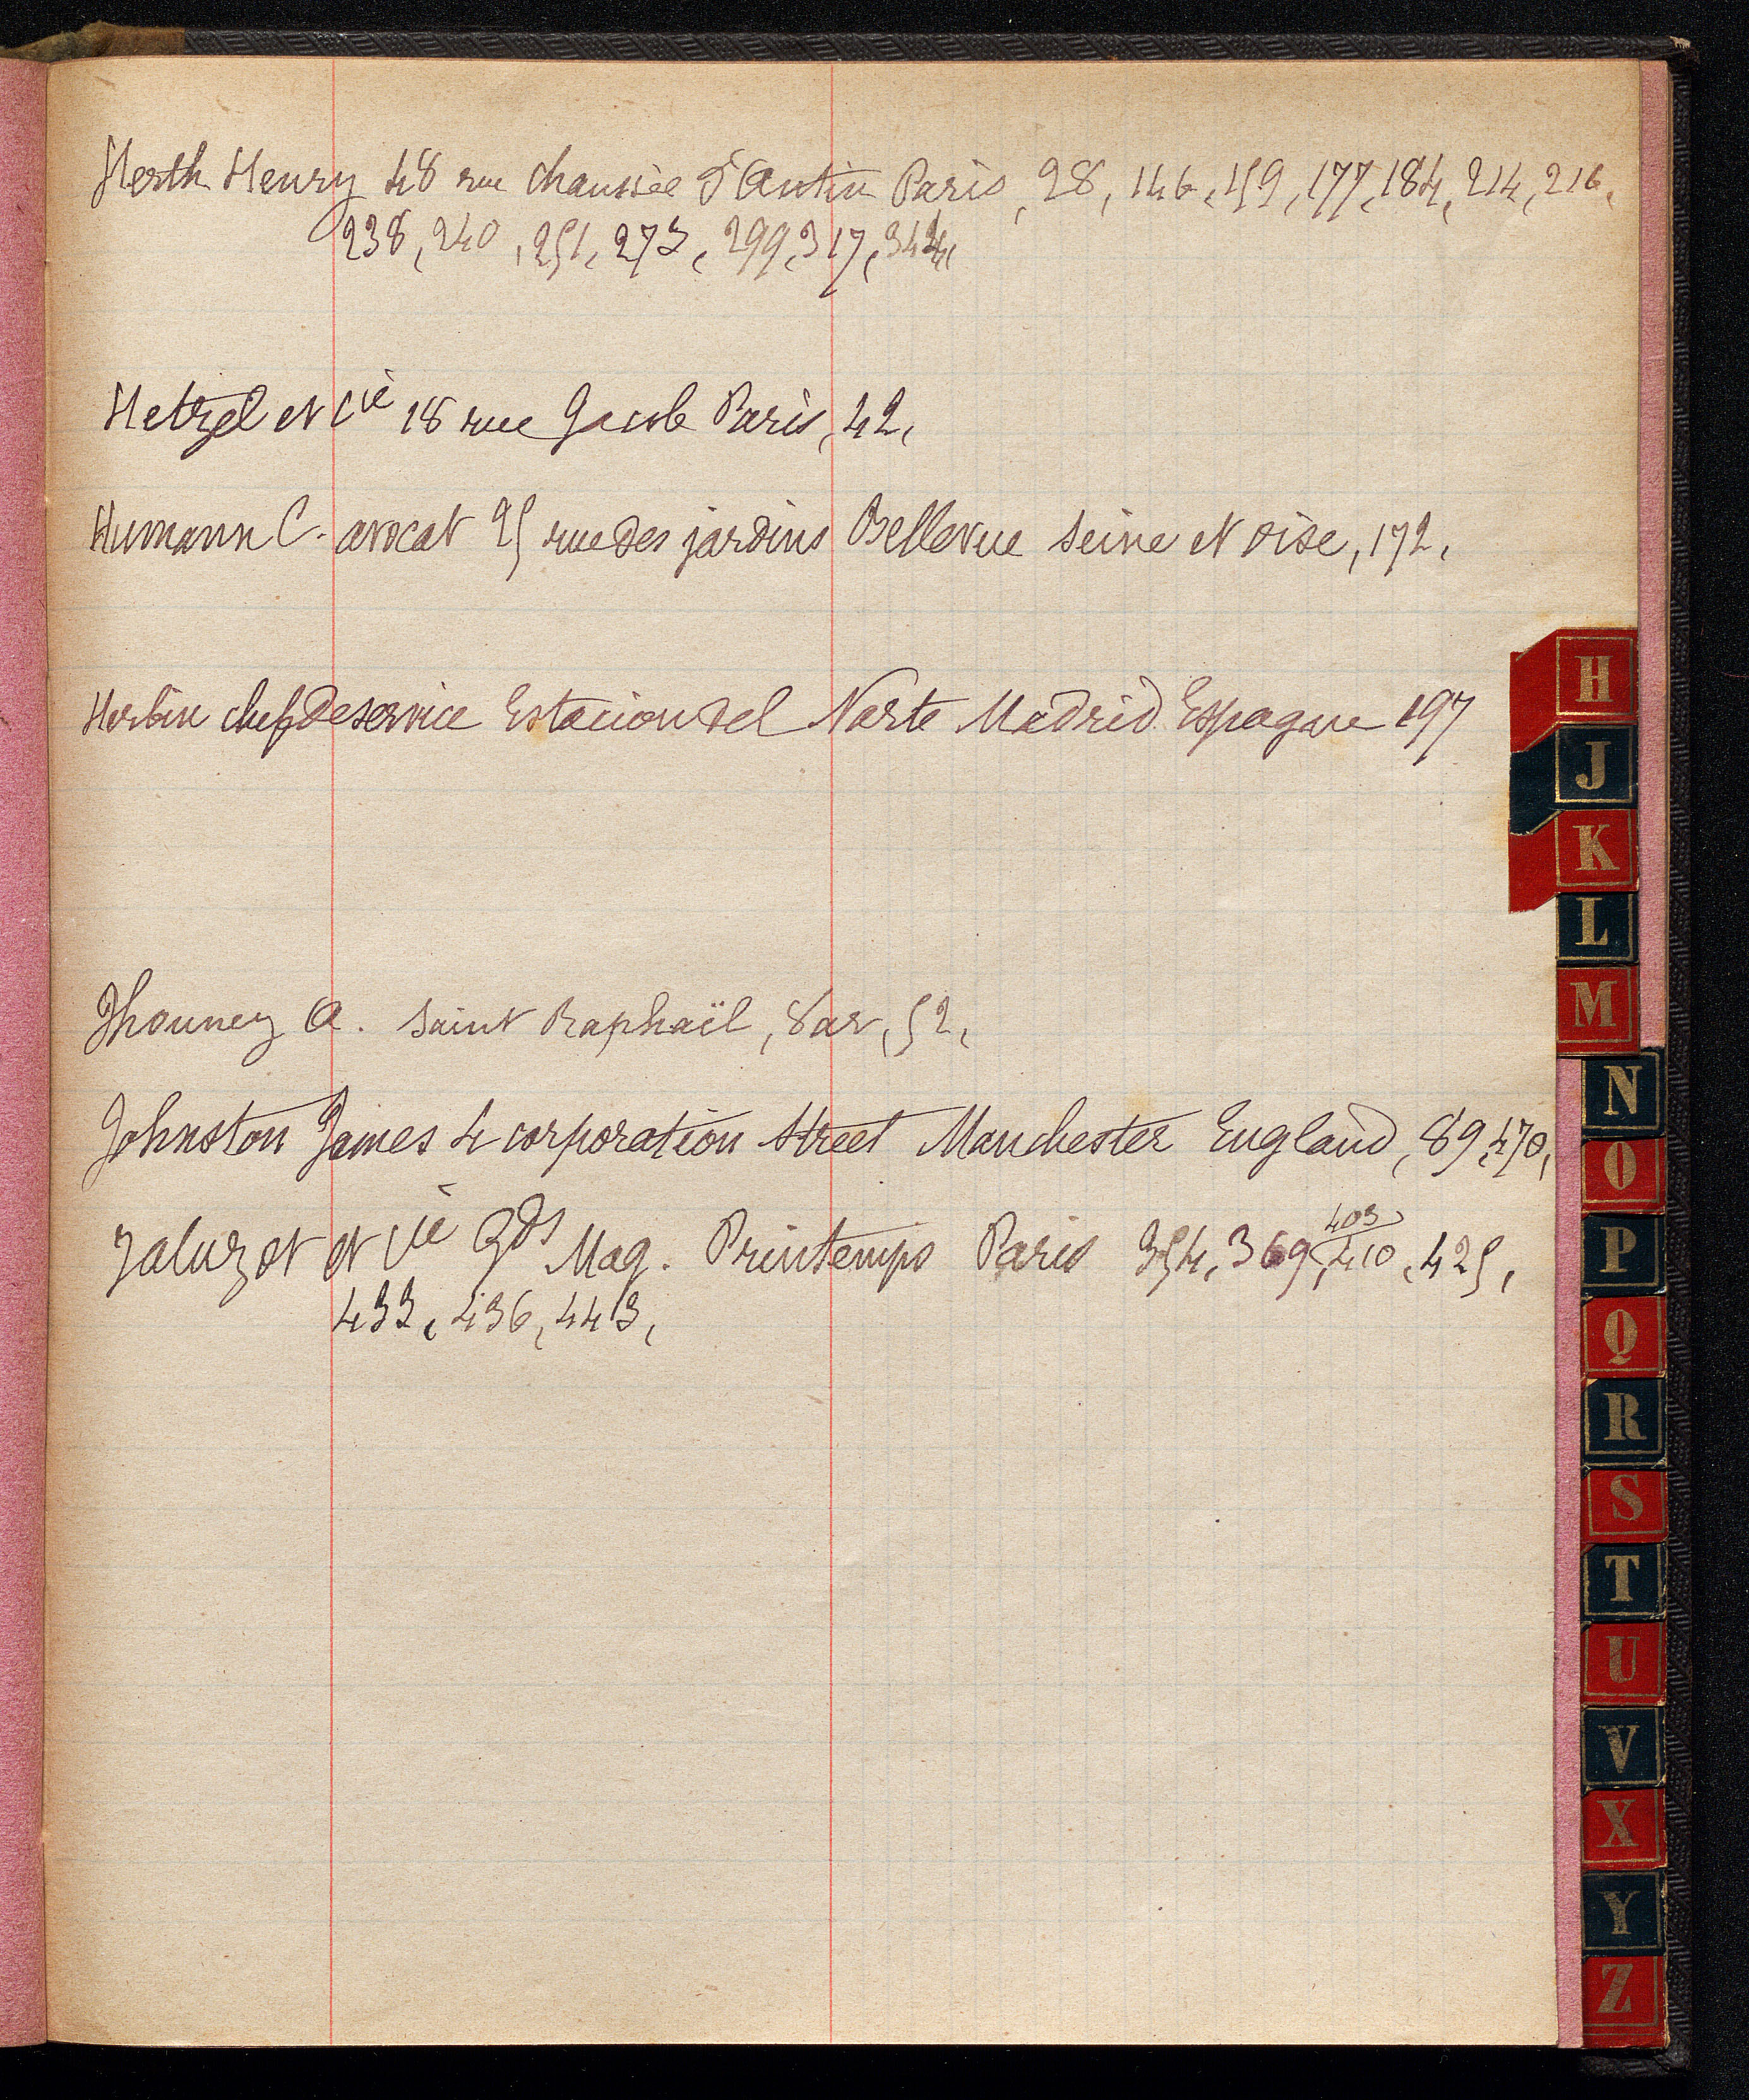 Herth Henry 48 rue chaussée d'Antin Paris, 28, 146, 159, 177, 184, 214, 216,
238, 240, 251, 273, 299, 317, 344,
Hetzel et Cie 18 rue Jacob Paris, 42,
Humann C. avocat 25 rue des jardins Bellevue Seine et Oise, 172,
Herbin chef de service Estacion del Norte Madrid Espagne 197
Jhouney A. Saint Raphaël, Var, 52,
Johnston James 4 corporation Street Manchester England, 89, 470,
Jaluzot et Cie Gds Mag. Printemps Paris 354, 369, 403, 410, 425,
433, 436, 443,
H
J
K
L
M
N
O
P
Q
R
S
T
U
V
X
Y
Z